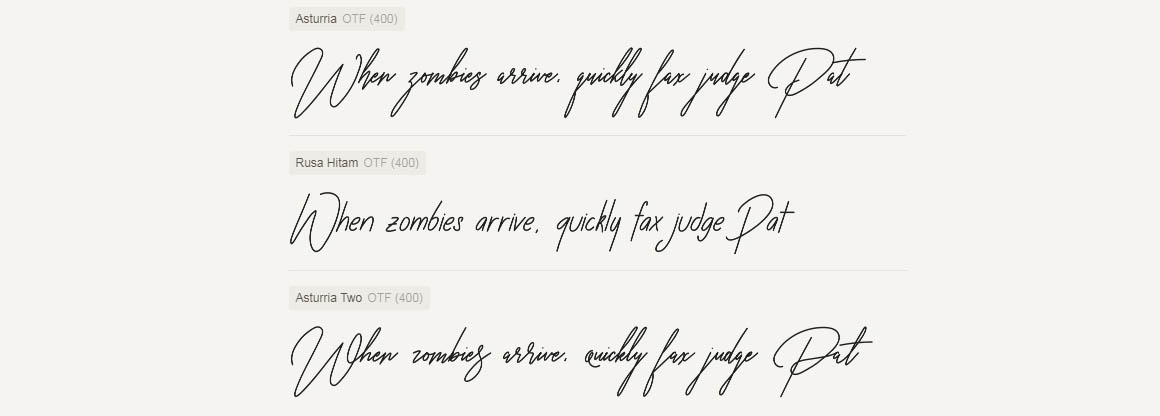 Asturria OTF (400)
When zombies arrive. quickly fax judge Pat
Rusa Hitam OTF (400)
When zombies arrive, quickly fax judge Pat
Asturria Two OTF (400)
When zombies arrive. quickly fax judge Pat